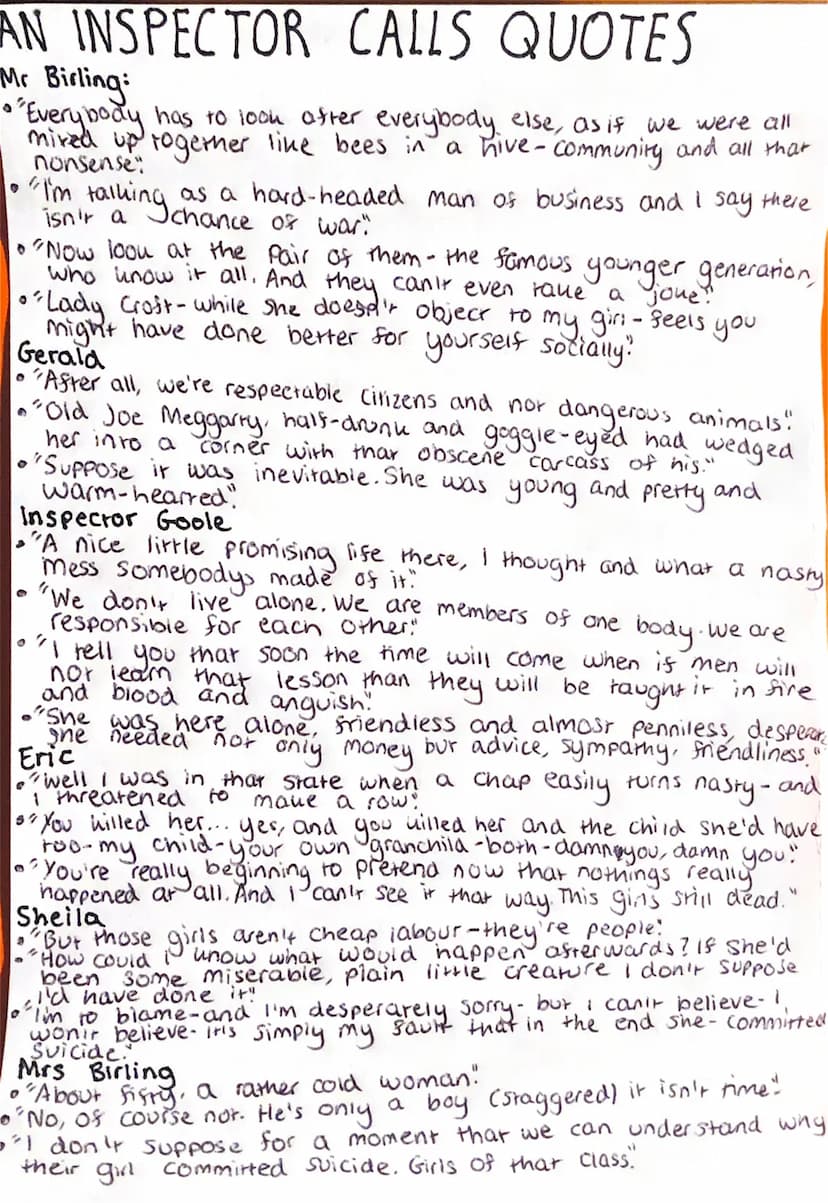 AN INSPECTOR CALLS QUOTES
Mr Birling:
• "Everybody has to look after everybody else, as if we were all
mixed up together like bees in a hive - community and all that
nonsense".
• "I'm talking as a hard-headed man of business and I say there
isn't a chance of war".
• "Now look at the pair of them - the famous younger generation,
who know it all. And they can't even take a joke".
• "Lady Croft - while she doesn't object to my girl - feels you
might have done better for yourself socially".
Gerald
• "After all, we're respectable citizens and not dangerous animals".
• "Old Joe Meggarty, half-drunk and goggle-eyed had wedged
her into a corner with that obscene carcass of his."
• "Suppose it was inevitable. She was young and pretty and
warm-hearted".
Inspector Goole
• "A nice little promising life there, I thought and what a nasty
mess somebodys made of it".
• "We don't live alone. We are members of one body. We are
responsible for each other".
• "I tell you that soon the time will come when if men will
not learn that lesson than they will be taught it in fire
and blood and anguish".
• "She was here alone, friendless and almost penniless,
she needed not only money but advice, sympathy, friendliness."
Eric
• "Well I was in that state when a chap easily turns nasty - and
i threatened to make a row".
• "You killed her... yes, and you killed her and the child she'd have
too - my child - your own granchild - both - damn you, damn you".
• "You're really beginning to pretend now that nothings really
happened at all. And I can't see it that way. This girls still dead."
Sheila
• "But those girls aren't cheap labour - they're people".
• "How could i know what would happen afterwards? If she'd
been some miserable, plain little creature I don't suppose
i'd have done it".
• "I'm to blame - and I'm desperately sorry - but i can't believe - I
won't believe - it's simply my fault that in the end she - committed
suicide."
Mrs Birling
• "About fifty, a rather cold woman".
• "No, of course not. He's only a boy (staggered) it isn't time".
• "I don't suppose for a moment that we can understand why
their girl committed suicide. Girls of that class".